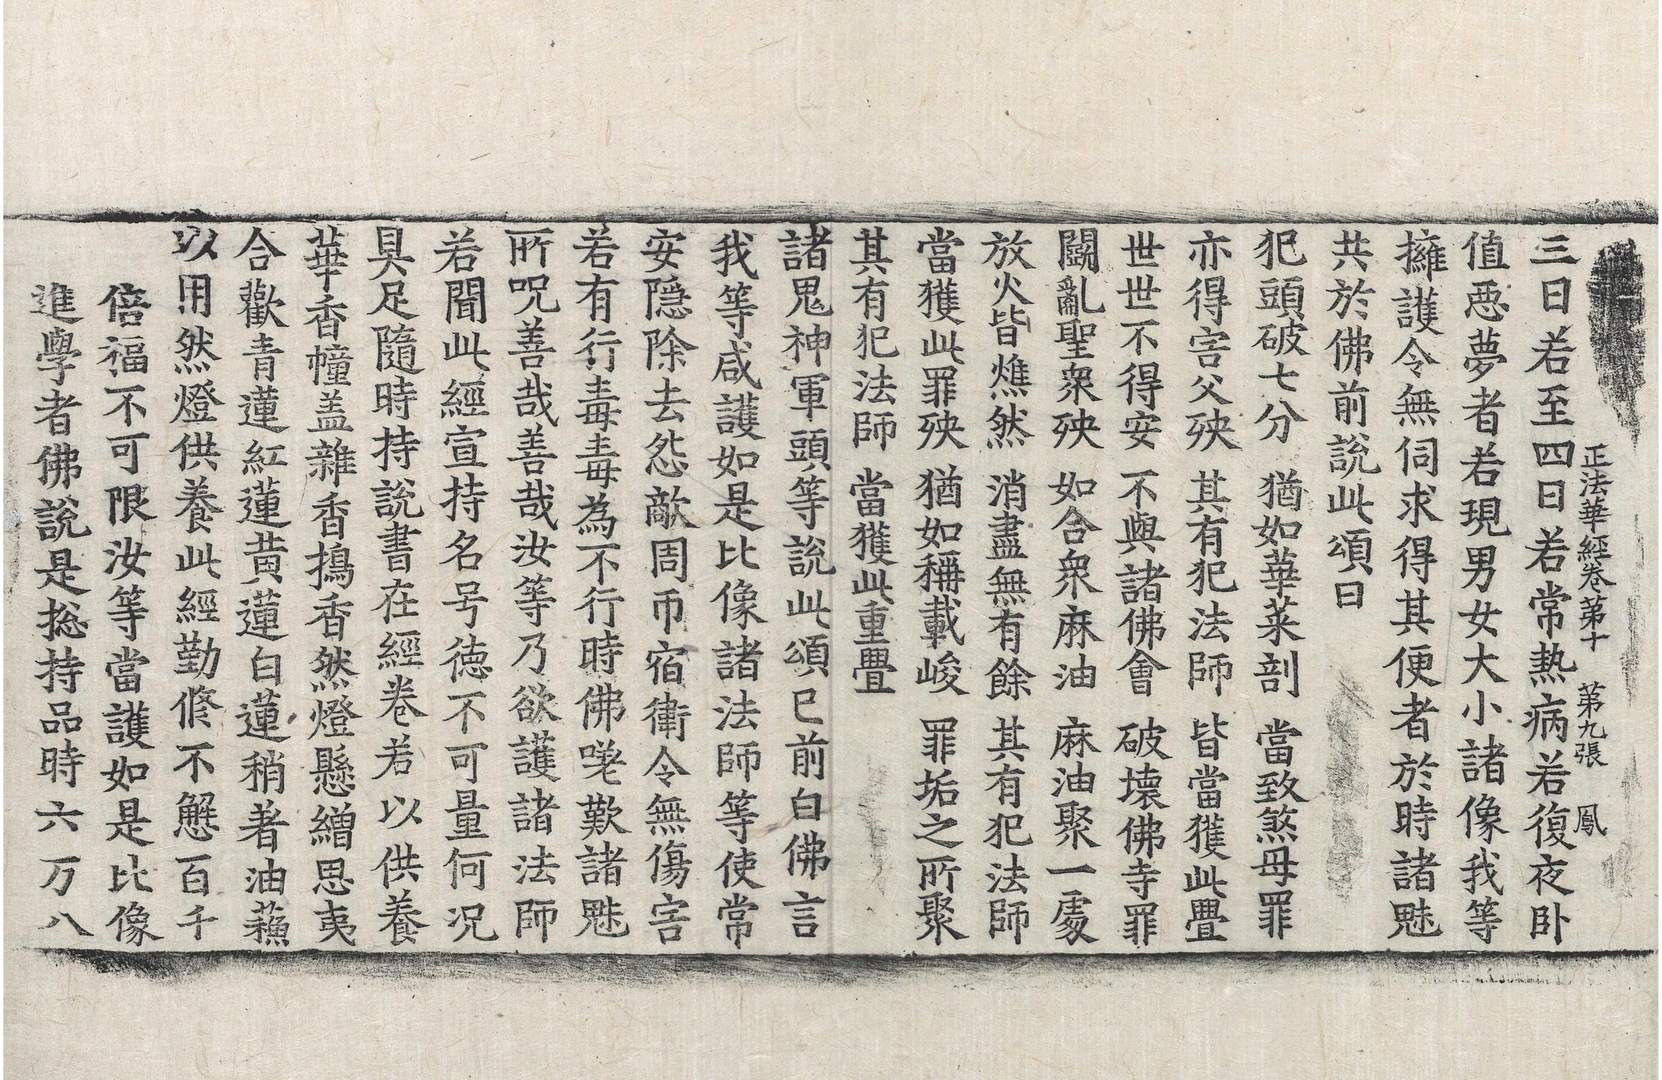 正法華經卷第十 第九張 鳳
三日若至四日若常熱病若復夜卧
值惡夢者若現男女大小諸像我等
擁護令無伺求得其便者於時諸魅
共於佛前說此頌曰
犯頭破七分 猶如華菜剖 當致煞母罪
亦得害父殃 其有犯法師 皆當獲此疊
世世不得安 不與諸佛會 破壞佛寺罪
鬭亂聖衆殃 如合衆麻油 麻油聚一處
放火皆燋然 消盡無有餘 其有犯法師
當獲此罪殃 猶如稱載峻 罪垢之所聚
其有犯法師 當獲此重疊
諸鬼神軍頭等說此頌已前白佛言
我等咸護如是比像諸法師等使常
安隱除去怨敵周帀宿衛令無傷害
若有行毒毒為不行時佛嗟歎諸魅
所呪善哉善哉汝等乃欲護諸法師
若聞此經宣持名号德不可量何况
具足隨時持說書在經卷若以供養
華香幢盖雜香擣香然燈懸繒思夷
合歡青蓮紅蓮黃蓮白蓮稍著油蘓
以用然燈供養此經勤修不懈百千
倍福不可限汝等當護如是比像
進學者佛說是揔持品時六万八